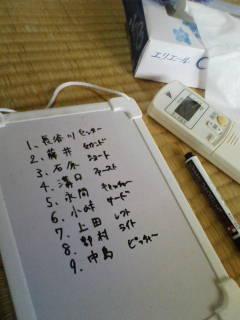 エリエール
1、長谷川 センター
2、藤井 セカンド
3、石原 ショート
4、溝口 ファースト
5、永間 キャッチャー
6、小林 サード
7、上田 レフト
8、野村 ライト
9、中島 ピッチャー